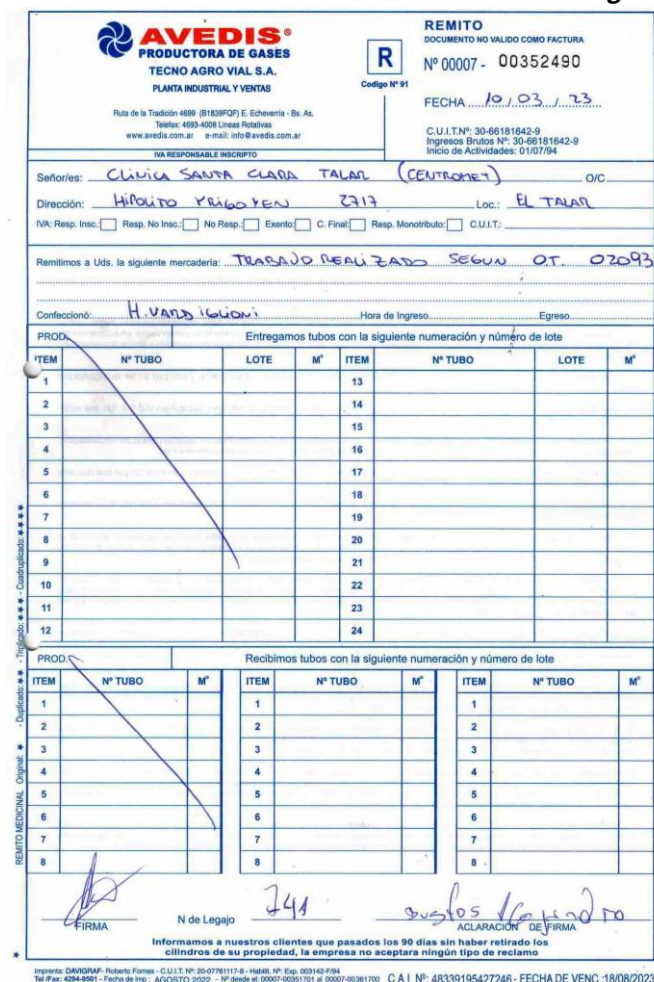 AVEDIS®
PRODUCTORA DE GASES
TECNO AGRO VIAL S.A.
PLANTA INDUSTRIAL Y VENTAS
Ruta de la Tradición 4699 (B1839FQF) E. Echeverria - Bs. As.
Telefax: 4693-4006 Lineas Rotativas
www.avedis.com.ar e-mail: info@avedis.com.ar
IVA RESPONSABLE INSCRIPTO
R
Codigo Nº 91
REMITO
DOCUMENTO NO VALIDO COMO FACTURA
Nº 00007 - 00352490
FECHA 10 / 03 / 23
C.U.I.T.Nº: 30-66181642-9
Ingresos Brutos Nº: 30-66181642-9
Inicio de Actividades: 01/07/94
Señor/es: CLINICA SANTA CLARA TALAR (CENTROMET) O/C
Dirección: HIPOLITO YRIGOYEN 2717 Loc.: EL TALAR
IVA: Resp. Insc.: Resp. No Insc.: No Resp.: Exento: C. Final: Resp. Monotributo: C.U.I.T.:
Remitimos a Uds. la siguiente mercadería: TRABAJO REALIZADO SEGUN OT. 02093
Confeccionó: H. VARDIGLIONI Hora de Ingreso Egreso
PROD. Entregamos tubos con la siguiente numeración y número de lote
ITEM Nº TUBO LOTE M³ ITEM Nº TUBO LOTE M³
1 13
2 14
3 15
4 16
5 17
6 18
7 19
8 20
9 21
10 22
11 23
12 24
PROD. Recibimos tubos con la siguiente numeración y número de lote
ITEM Nº TUBO M³ ITEM Nº TUBO M³ ITEM Nº TUBO M³
1 1 1
2 2 2
3 3 3
4 4 4
5 5 5
6 6 6
7 7 7
8 8 8
FIRMA N de Legajo 741 ACLARACIÓN DE FIRMA
Informamos a nuestros clientes que pasados los 90 días sin haber retirado los
cilindros de su propiedad, la empresa no aceptara ningún tipo de reclamo
Imprenta: DAVIGRAF- Roberto Fornes - C.U.I.T. Nº: 20-07761117-8 - Habilit. Nº: Exp. 003142-F/94
Tel /Fax: 4294-9501 - Fecha de Imp.: AGOSTO 2022 - Nº desde el: 00007-00351701 al 00007-00361700 C.A.I. Nº: 48339195427246 - FECHA DE VENC :18/08/2023
REMITO MEDICINAL Original: * - Duplicado: ** - Triplicado: *** - Cuadruplicado: ****